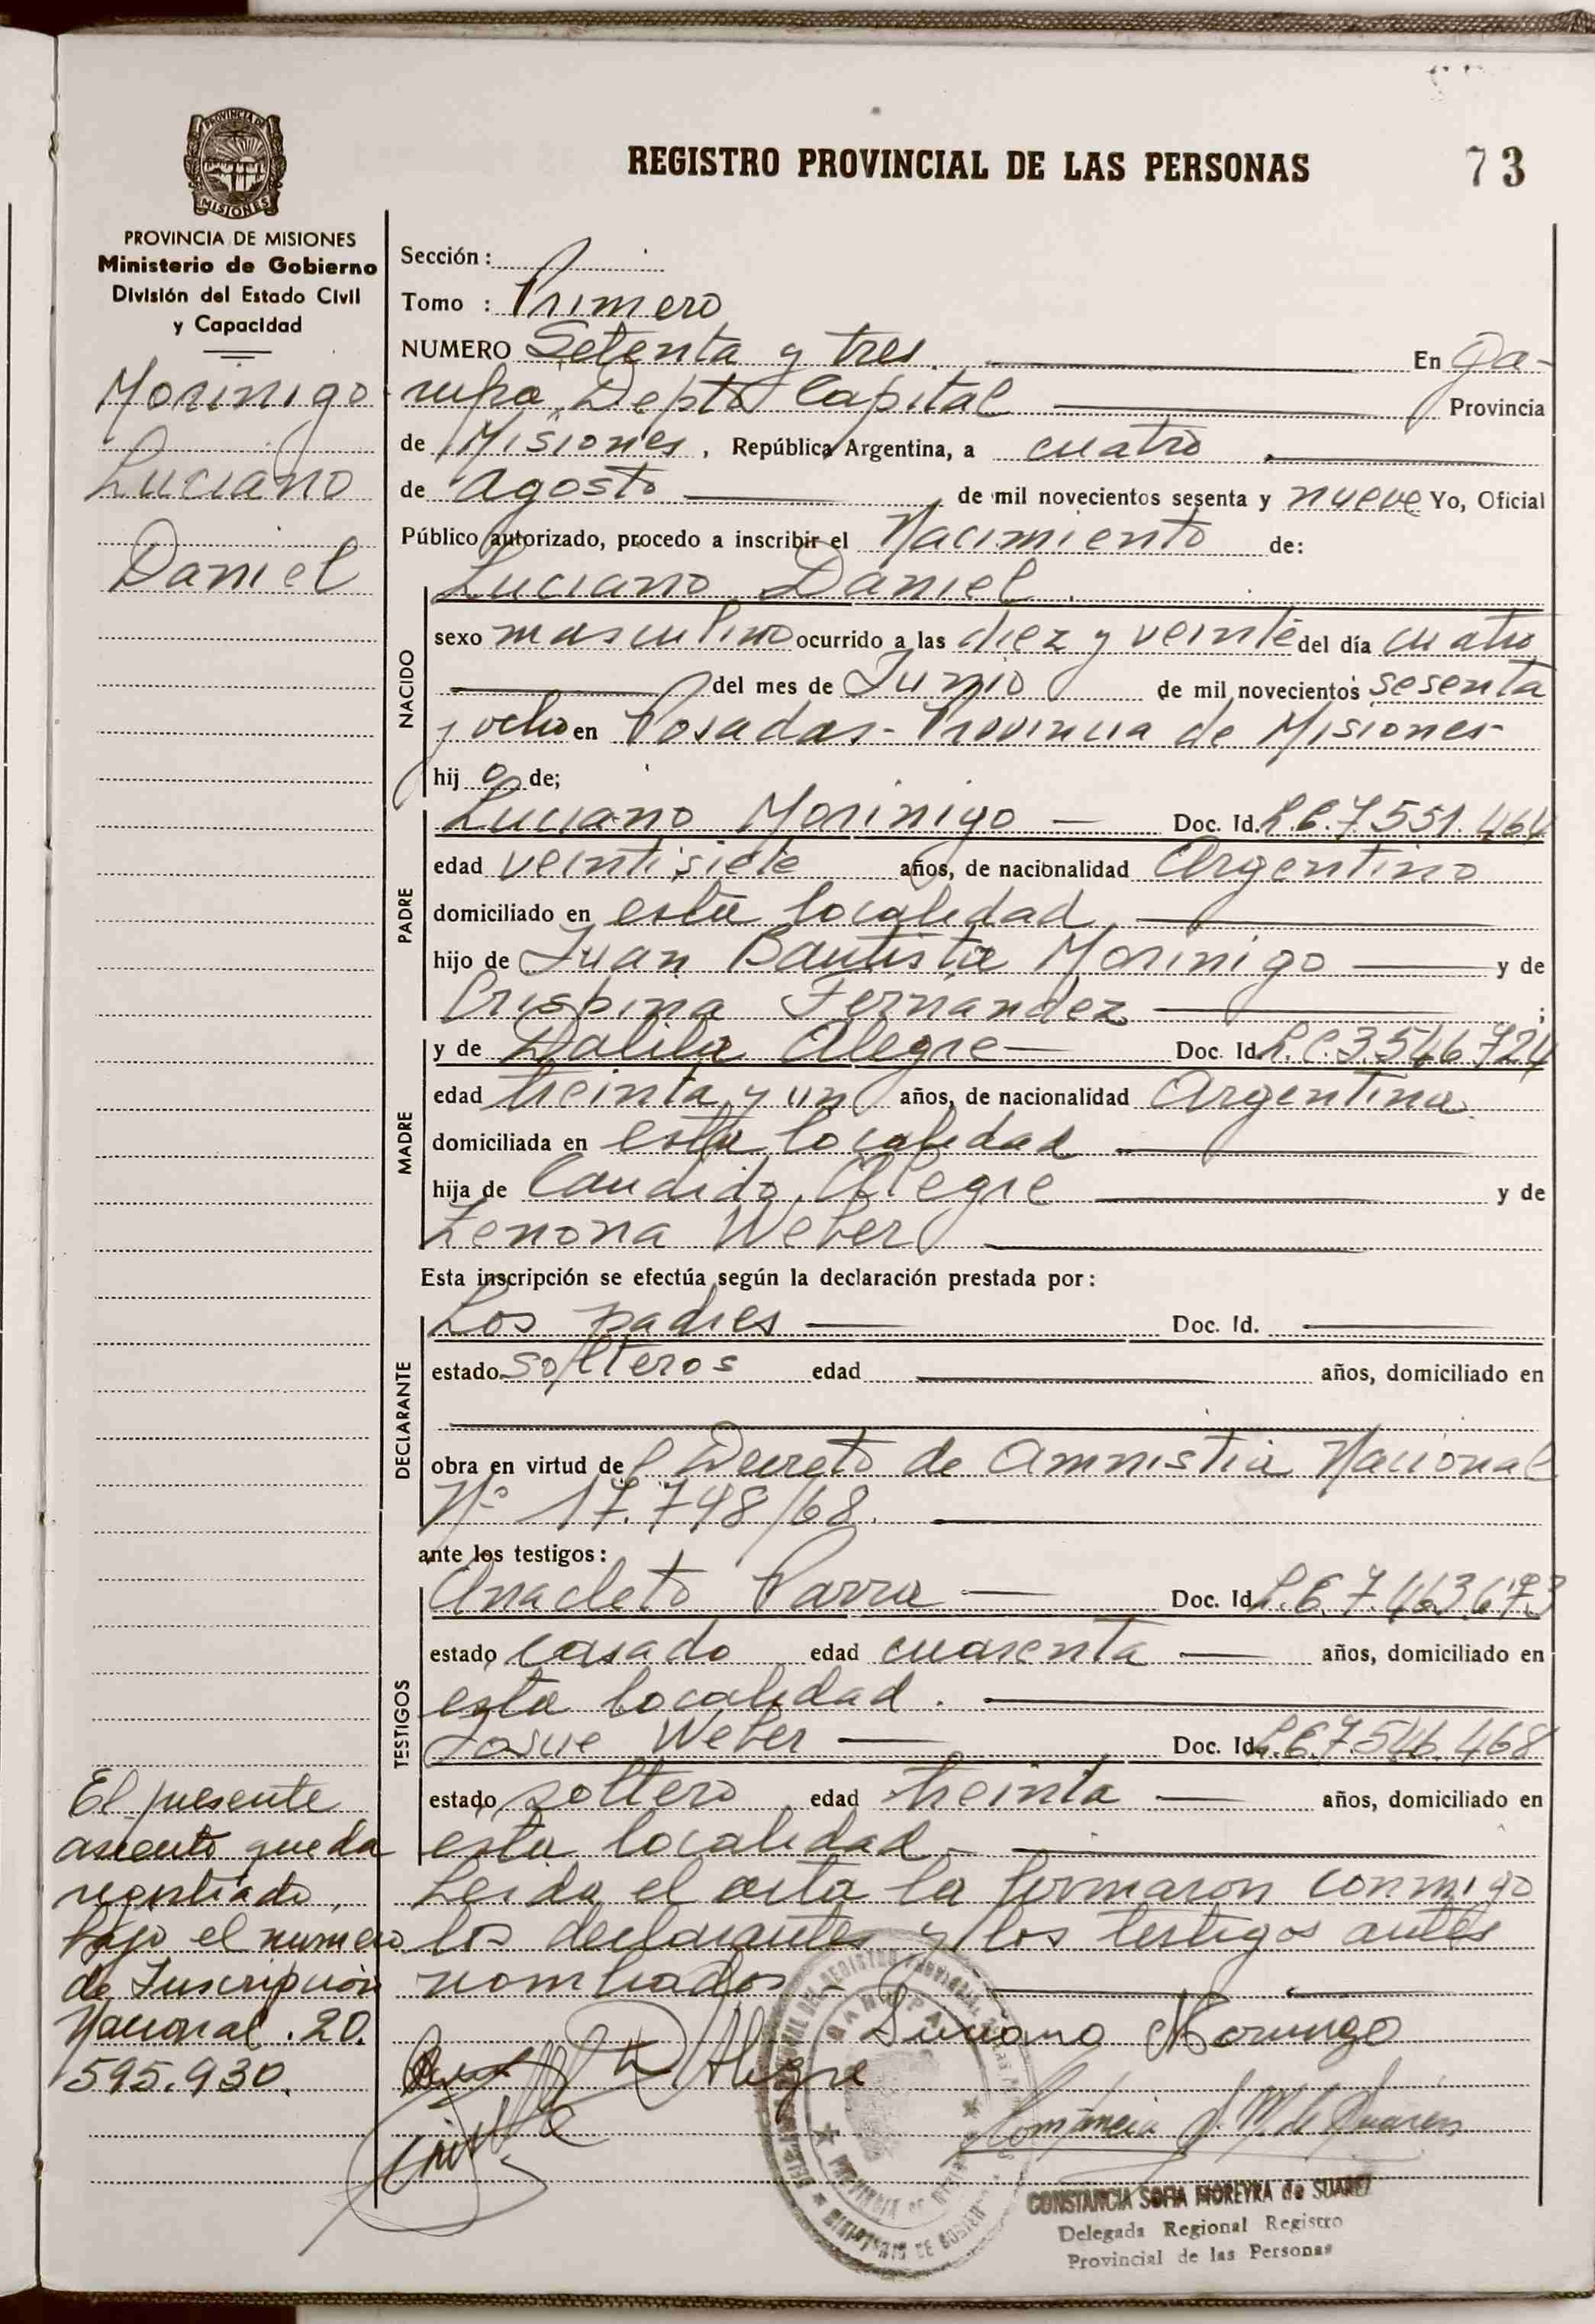 REGISTRO PROVINCIAL DE LAS PERSONAS 73
PROVINCIA DE MISIONES
PROVINCIA DE MISIONES
Ministerio de Gobierno
División del Estado Civil
y Capacidad
Morinigo
Luciano
Daniel
Sección:
Tomo : Primero
NUMERO Setenta y tres En Ga-
rupa, Depto Capital Provincia
de Misiones, República Argentina, a cuatro
de agosto de mil novecientos sesenta y nueve Yo, Oficial
Público autorizado, procedo a inscribir el Nacimiento de:
NACIDO
Luciano Daniel.
sexo masculino ocurrido a las diez y veinte del día cuatro
del mes de Junio de mil novecientos sesenta
y ocho en Posadas - Provincia de Misiones-
hij o de;
PADRE
Luciano Morinigo — Doc. Id. L.E. 7.551.464
edad veintisiete años, de nacionalidad Argentino
domiciliado en esta localidad
hijo de Juan Bautista Morinigo — y de
Crispina Fernandez — ;
MADRE
y de Dalila Alegre — Doc. Id. L.C. 3.546.724
edad treinta y un años, de nacionalidad Argentina.
domiciliada en esta localidad
hija de Candido Alegre — y de
Zenona Weber
Esta inscripción se efectúa según la declaración prestada por:
DECLARANTE
Los padres — Doc. Id. —
estado solteros edad — años, domiciliado en
obra en virtud del Decreto de Amnistia Nacional
N° 17.748/68.
ante los testigos:
TESTIGOS
Anacleto Parra — Doc. Id. L.E. 7.463.673
estado casado edad cuarenta — años, domiciliado en
esta localidad.
Josue Weber — Doc. Id. L.E. 7.546.468
estado soltero edad treinta — años, domiciliado en
esta localidad -
Leida el acta la firmaron conmigo
los declarantes y los testigos antes
nombrados -
El presente
asiento queda
registrado
bajo el numero
de Inscripción
Nacional. 20.
595.930.
Luciano Morinigo
D Alegre
Constancia S. M. de Suarez
GARUPA
MINISTERIO DE GOBIERNO
CONSTANCIA SOFIA MOREYRA de SUAREZ
Delegada Regional Registro
Provincial de las Personas